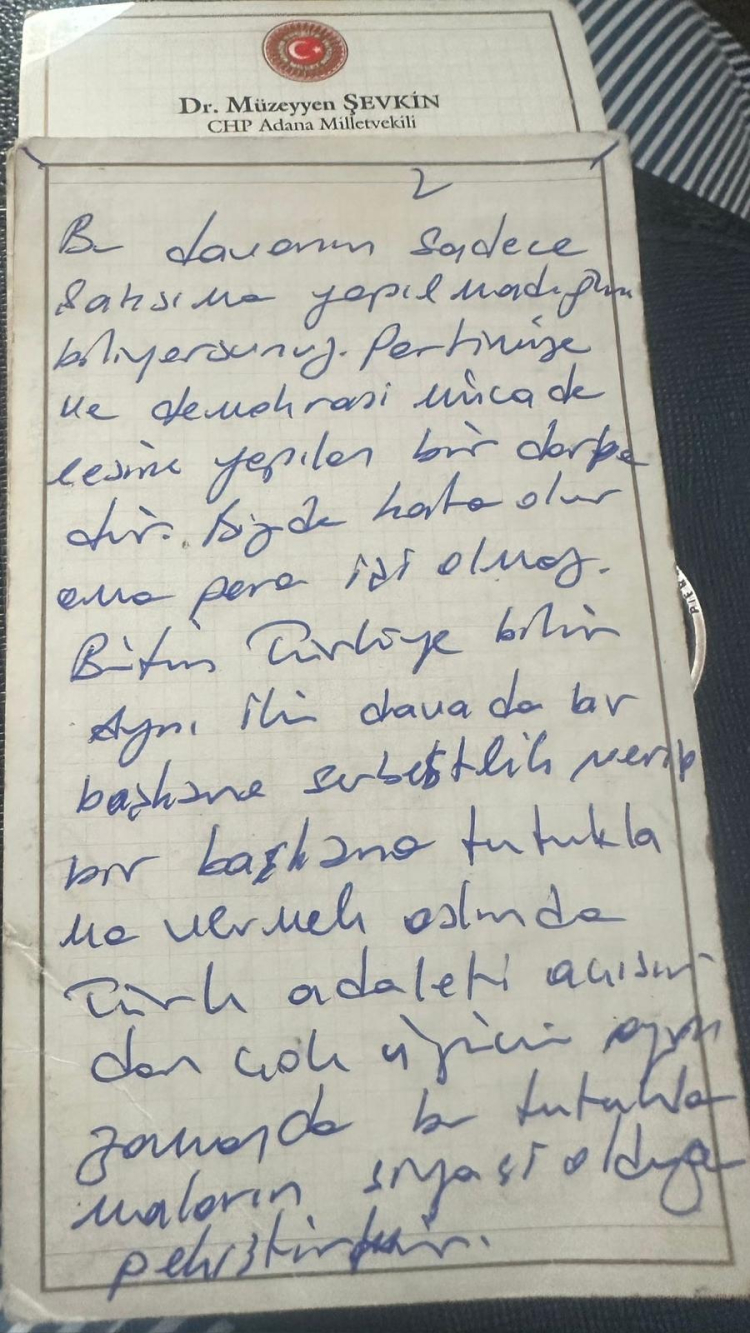 Dr. Müzeyyen ŞEVKİN
CHP Adana Milletvekili
2
Bu davanın sadece
şahsıma yapılmadığını
biliyorsunuz. Partimize
ve demokrasi mücade
lesine yapılan bir darbe
dir. Bizde hata olur
ama para işi olmaz.
Bütün Türkiye bilir
Aynı ilin davada bir
başkana serbestlik verip
bir başkana tutukla
ma vermek aslında
Türk adaleti açısın
dan çok üzücü aynı
zamanda bu tutukla
maların siyasi olduğu
pekiştirir.